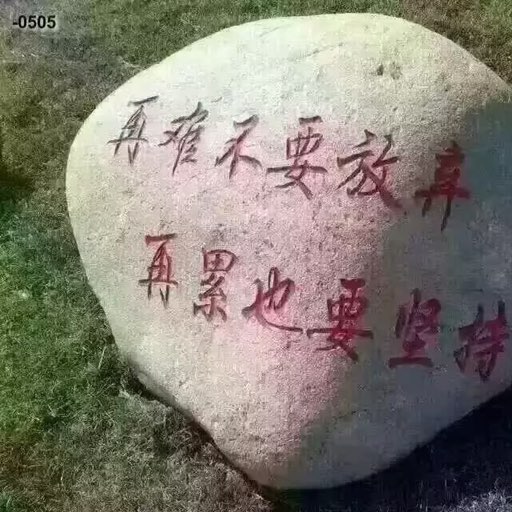 -0505
再难不要放弃
再累也要坚持